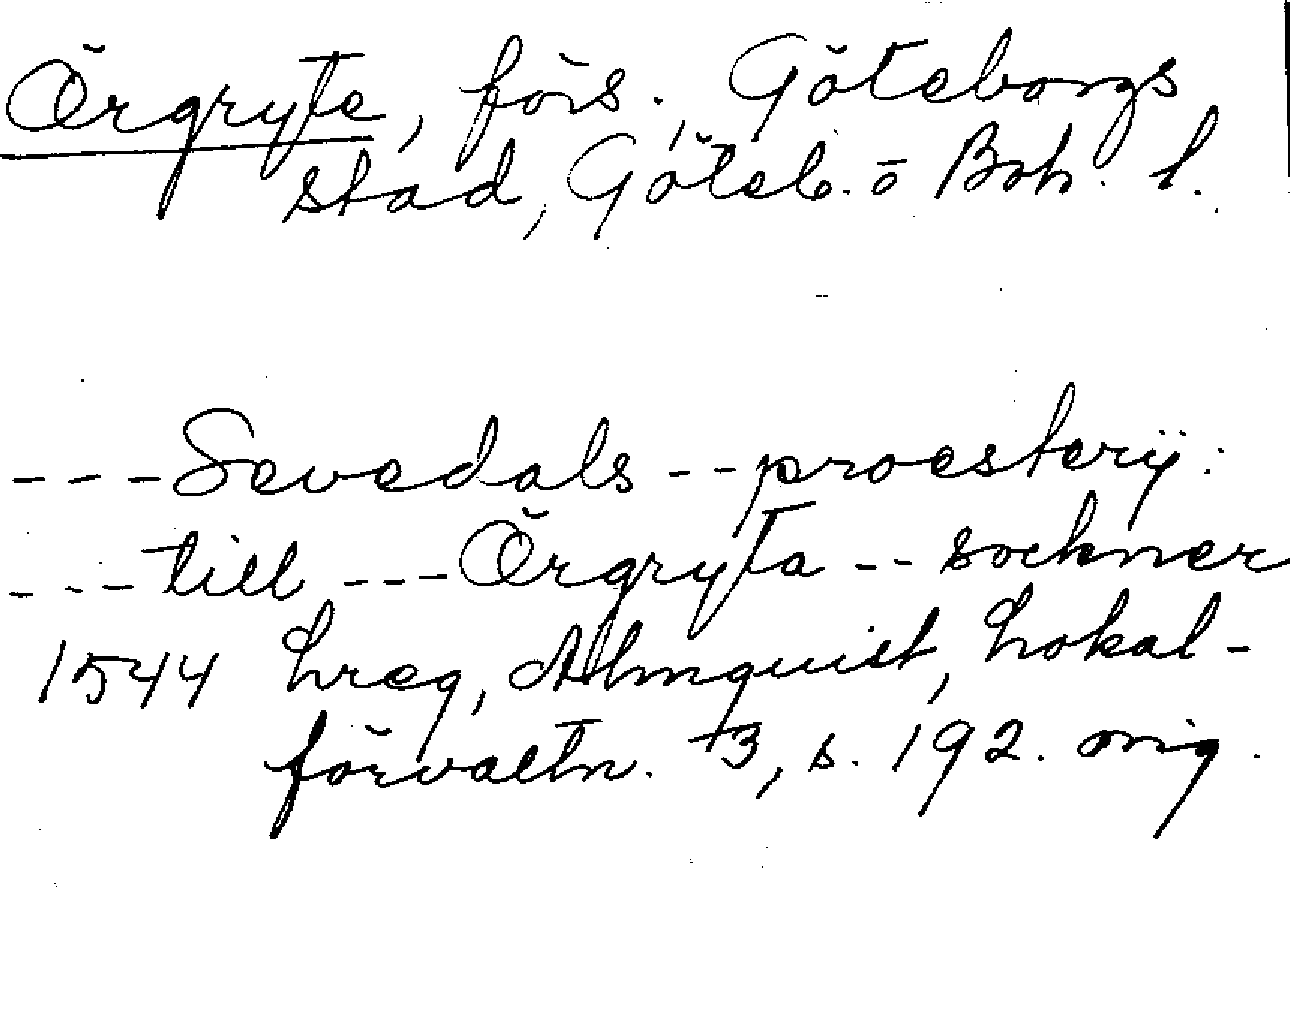 Örgryte, förs., Göteborgs
stad, Göteb. o Boh. l.
--- Sevedals -- proesterij:
--- till --- Örgryta -- sockner
1544 Lreg, Almquist, Lokal-
förvaltn. +3, s. 192. orig.